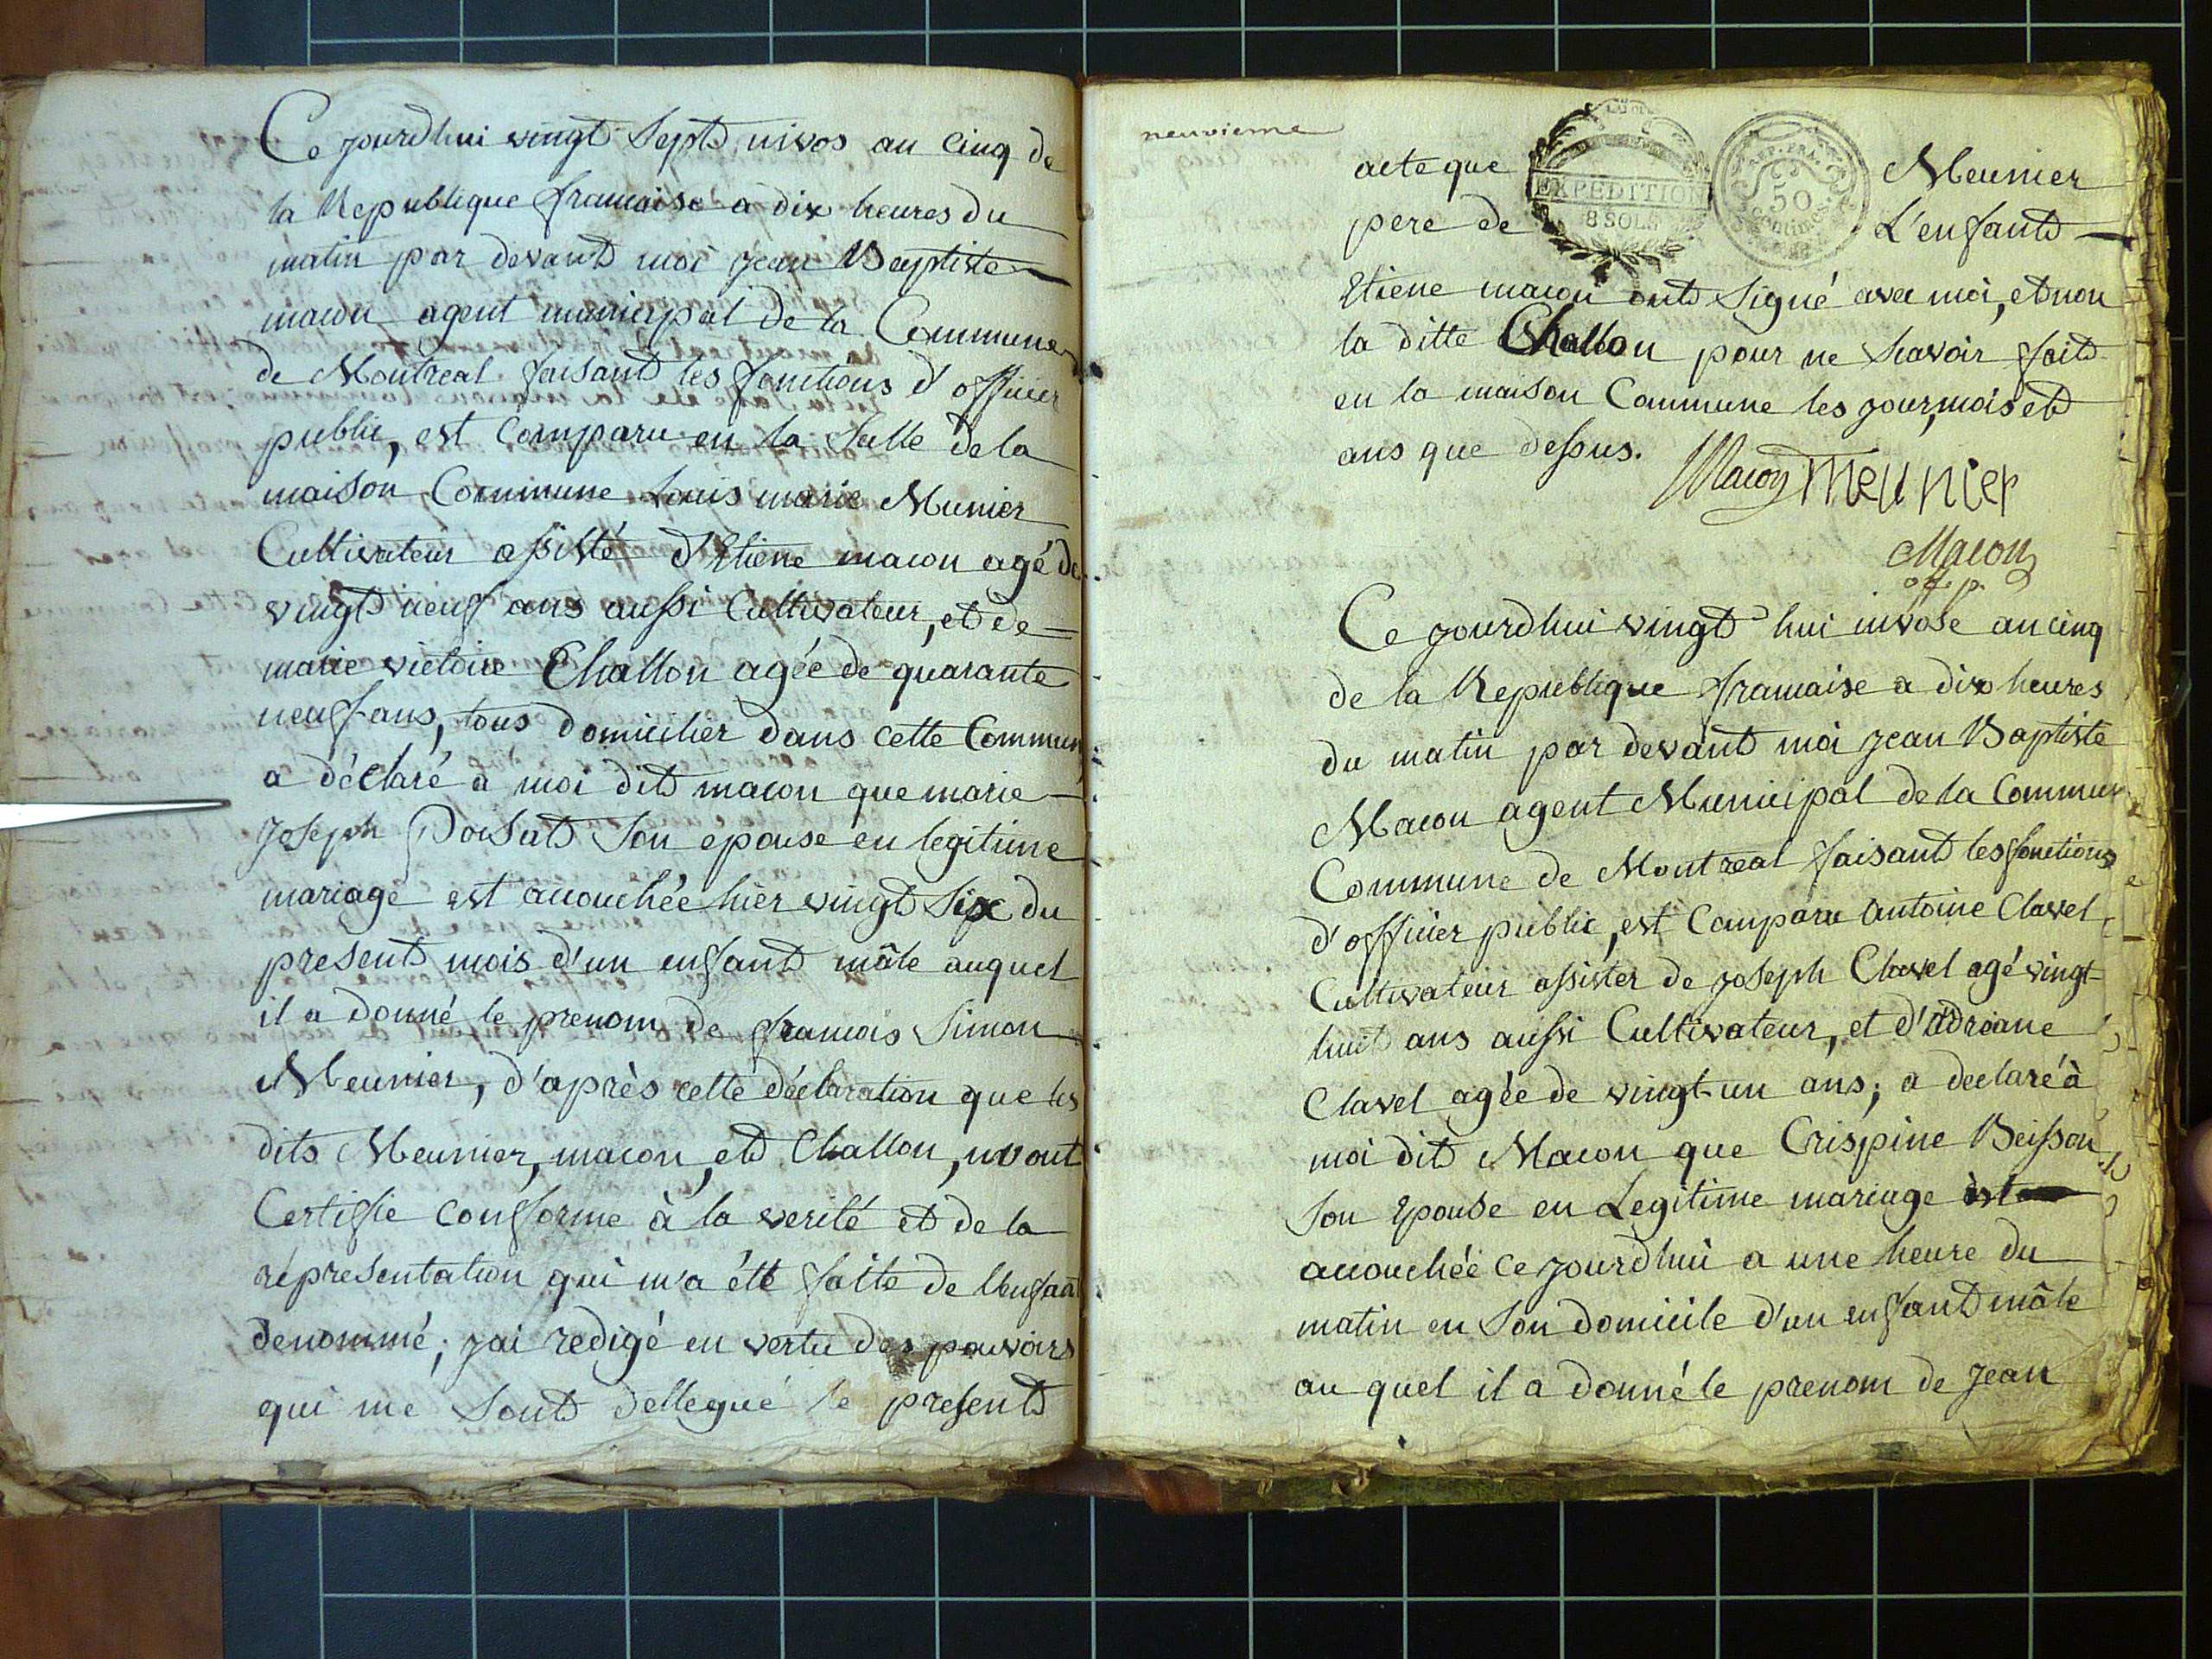 Ce jourdhui vingt Sept nivos an cinq de
la Republique francaise a dix heures du
matin par devant moi jean Baptiste
macon agent municipal de la Commune
de Montreal faisant les fonctions d'officier
public, est comparu en la Salle de la
maison Commune Louis marie Munier
Cultivateur assisté d'Etiene macon agé de
vingt neuf ans aussi Cultivateur, et de
marie victoire Challon agée de quarante
neuf ans, tous domicilier dans cette Commun
a déclaré a moi dit macon que marie
Joseph Son epouse en legitime
mariage est acouchée hier vingt Six du
present mois d'un enfant mâle auquel
il a donné le prenom de francois Simon
Meunier, d'après cette déclaration que les
dits Meunier, macon, et Challon, m'ont
Certifie conforme à la verité et de la
representation qui m'a été faite de l'enfant
denommé; jai redigé en vertu des pouvoirs
qui me Sont dellegué le present
neuvieme
acte que Meunier
pere de L'enfant
EXPEDITION
8 SOLS
REP. FRA.
50
centimes.
Etiene macon ont Signé avec moi, et non
la ditte Challon pour ne Savoir fait
en la maison Commune les jour, mois et
ans que dessus.
Macon Meunier
Macon
off. p.
Ce jourdhui vingt hui nivose an cinq
de la Republique francaise a dix heures
du matin par devant moi jean Baptiste
Macon agent Municipal de la Commun
Commune de Montreal faisant les fonctions
d'officier public, est Comparu Antoine Clavel
Cultivateur assister de joseph Clavel agé vingt
huit ans aussi Cultivateur, et d'Adriane
Clavel agée de vingt-un ans; a declaré à
moi dit Macon que Crispine Beisson
Son Epouse en Legitime mariage est
acouchée ce jourdhui a une heure du
matin en Son domicile d'un enfant mâle
au quel il a donné le prenom de Jean